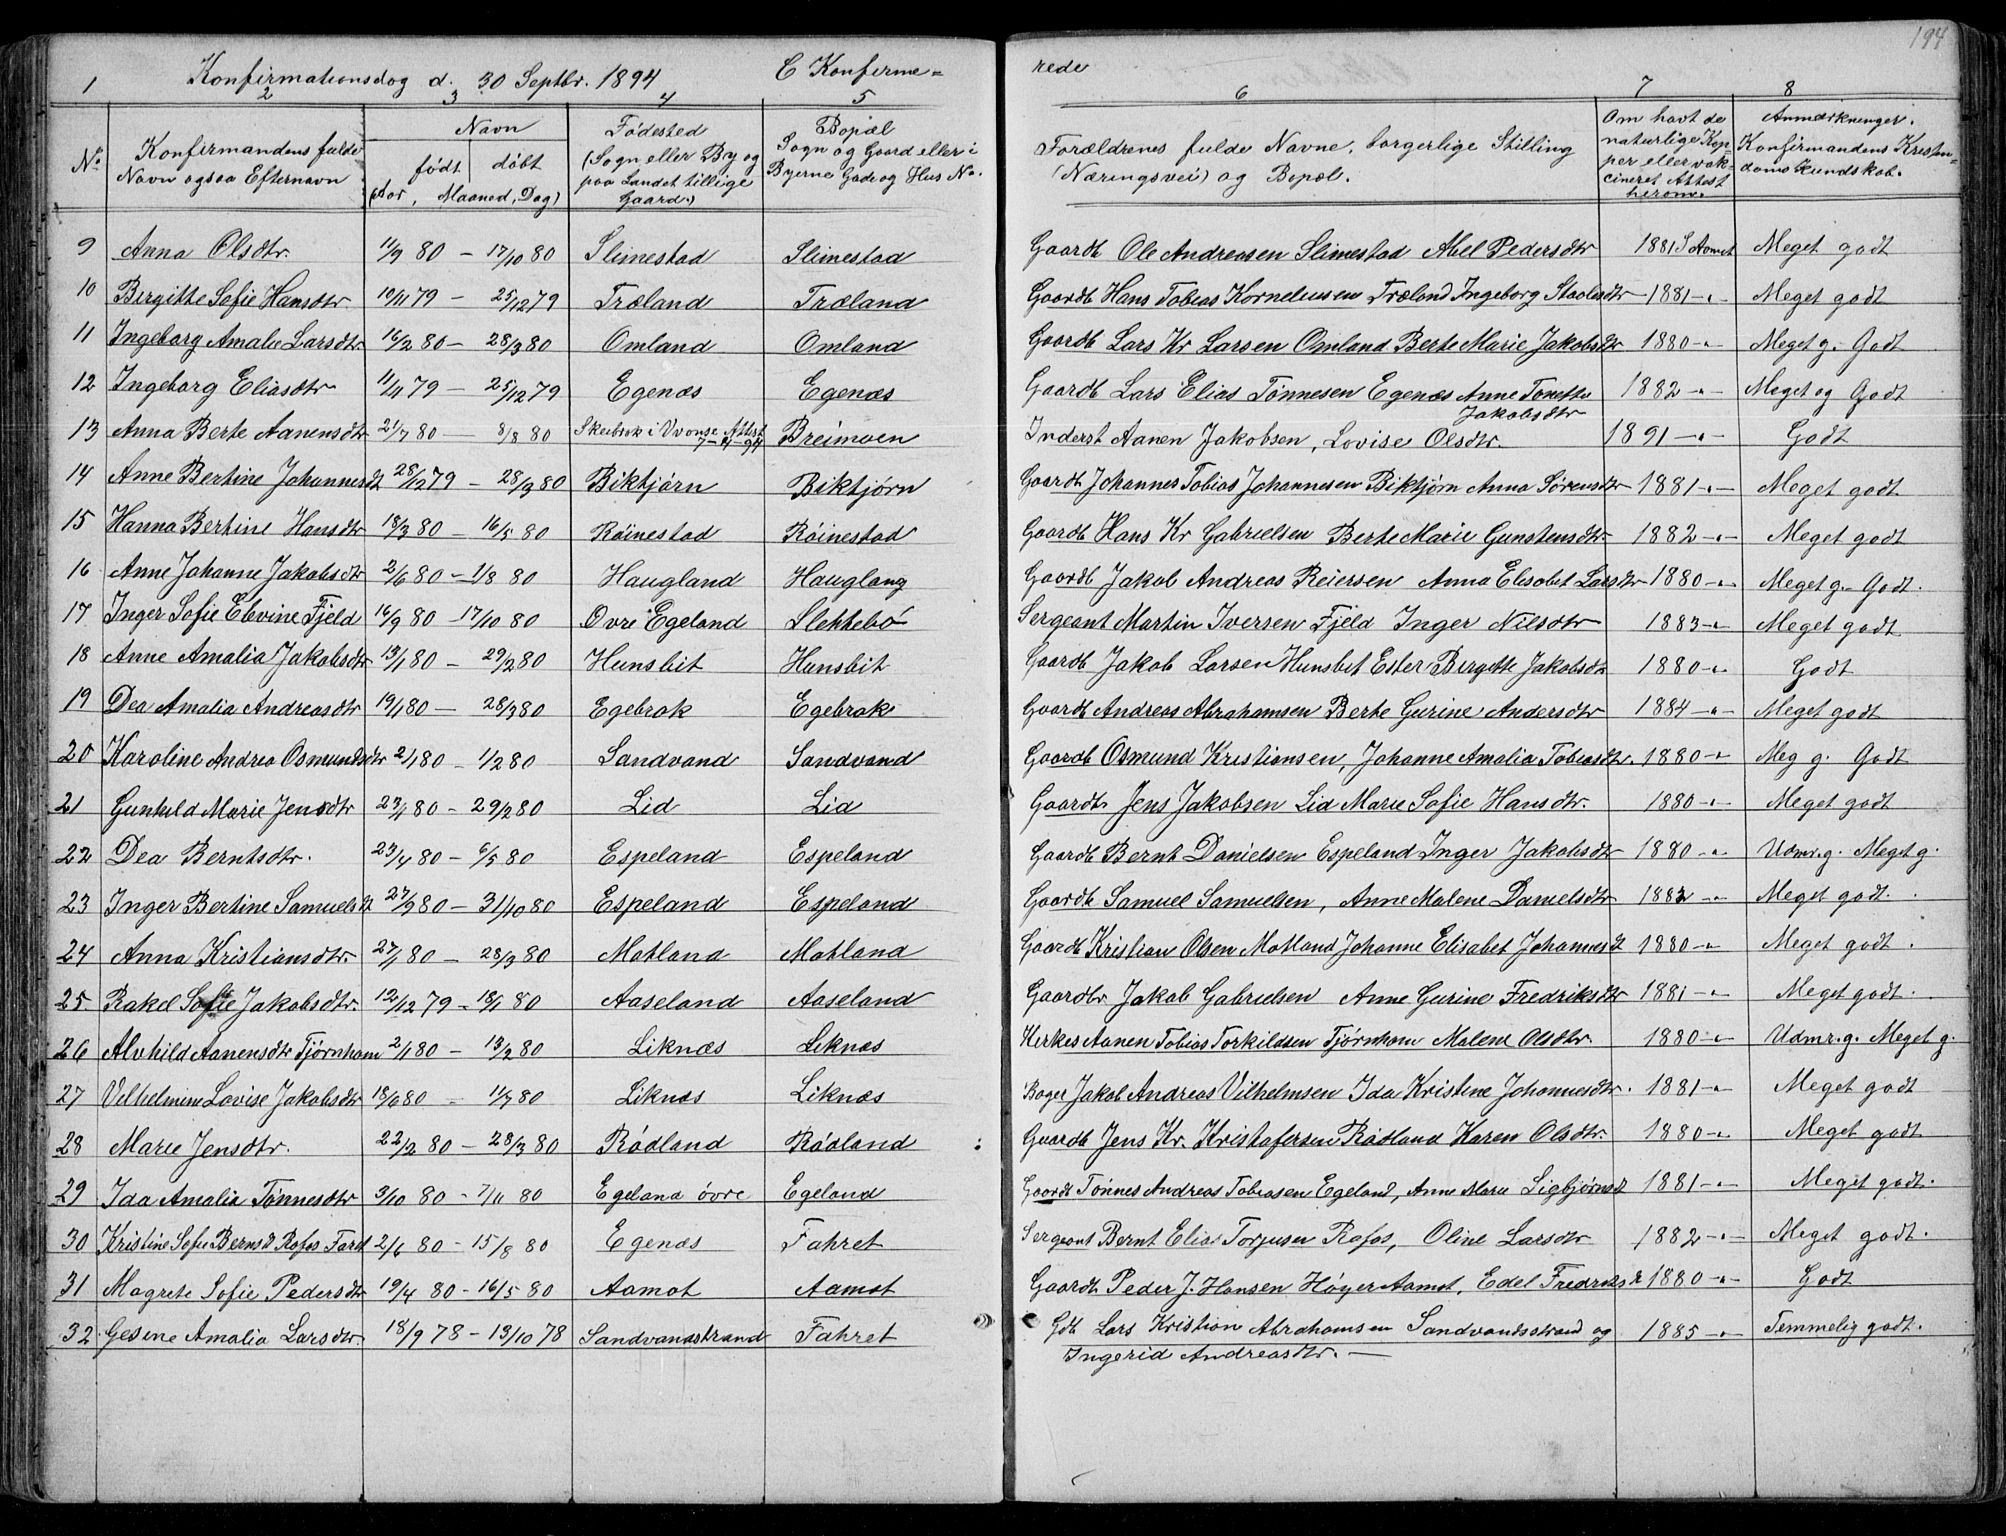 194
1 Konfirmationsdag d. 30 Septbr. 1894 C Konfirme=
rede
2 3 4 5 6 7 8
No. Konfirmandens fulde Navn ogsaa Efternavn
Navn født døbt (Aar, Maaned, Dag)
Fødested (Sogn eller By og paa Landet tillige Gaard.)
Bopæl Sogn og Gaard eller i Byerne Gade og Hus No.
Forældrenes fulde Navne, borgerlige Stilling (Næringsvei) og Bopæl.
Om havt de naturlige Kopper eller vakcineret Attest herom.
Anmærkninger. Konfirmandens Kristendoms Kundskab.
9 Anna Olsdtr. 11/9 80 – 17/10 80 Slimestad Slimestad Gaardb Ole Andreasen Slimestad Abel Pedersdtr 1881 S Aamot Meget godt
10 Bergitte Sofie Hansdtr. 19/11 79 – 25/12 79 Træland Træland Gaardb Hans Tobias Korneliusen Træland Ingeborg Staalesdtr 1881 -"- Meget godt
11 Ingeborg Amalie Larsdtr 16/2 80 – 28/3 80 Omland Omland Gaardb Lars Kr Larsen Omland Berte Marie Jakobsdtr 1880 -"- Meget g. Godt
12 Ingeborg Eliasdtr 11/11 79 – 25/12 79 Egenæs Egenæs Gaardb Lars Elias Tønnesen Egenæs Anne Tonette Jakobsdtr 1882 -"- Meget og Godt
13 Anna Berte Aanensdtr 21/7 80 – 8/8 80 Skeibrok i Vvonse Attest 7-4-94 Breimoen Inderst Aanen Jakobsen, Lovise Olsdtr. 1891 -"- Godt
14 Anne Bertine Johannesdt 28/12 79 – 28/3 80 Biktjørn Biktjørn Gaardb Johannes Tobias Johannesen Biktjørn Anna Sørensdtr 1881 -"- Meget godt
15 Hanna Bertine Hansdtr 18/3 80 – 16/5 80 Røinestad Røinestad Gaardb Hans Kr Gabrielsen Berte Marie Gunstensdtr 1882 -"- Meget godt
16 Anne Johanne Jakobsdtr 2/6 80 – 1/8 80 Haugland Haugland Gaardb Jakob Andreas Reiersen Anna Elisabet Larsdtr 1880 -"- Meget g. Godt.
17 Inger Sofie Elevine Fjeld 16/9 80 – 17/10 80 Ovre Egeland Slekkebø Sergeant Martin Iversen Fjeld Inger Nilsdtr 1883 -"- Meget godt
18 Anne Amalia Jakobsdtr 13/1 80 – 29/2 80 Hunsbit Hunsbit Gaardb Jakob Larsen Hunsbet Ester Bergitte Jakobsdtr 1880 -"- Godt
19 Dea Amalia Andreasdtr 19/1 80 – 28/3 80 Egebrok Egebrok Gaardb Andreas Abrahamsen Berte Gurine Andersdtr 1884 -"- Meget godt
20 Karoline Andrea Osmundsdtr 2/1 80 – 1/2 80 Sandvand Sandvand Gaardb Osmund Kristiansen, Johanne Amalia Tobiasdtr. 1880 -"- Meg g. Godt
21 Gunhild Marie Jensdtr 23/1 80 – 29/2 80 Lid Lid Gaardb Jens Jakobsen Lid Marie Sofie Hansdtr. 1880 -"- Meget godt
22 Dea Berntsdtr. 23/4 80 – 6/5 80 Espeland Espeland Gaardb Bernt Danielsen Espeland Inger Jakobsdtr 1880 -"- Udmr.g. Meget g.
23 Inger Bertine Samuelsdt 27/9 80 – 31/10 80 Espeland Espeland Gaardb Samuel Samuelsen, Anne Malene Danielsdtr 1882 -"- Meget godt.
24 Anna Kristiansdtr 27/1 80 – 28/3 80 Motland Motland Gaardb Kristian Olsen Motland Johanne Elisabet Johannesdt 1880 -"- Meget godt.
25. Rakel Sofie Jakobsdtr. 12/12 79 – 18/1 80 Aaseland Aaseland Gaardbr Jakob Gabrielsen Anne Gurine Fredriksdtr 1881 -"- Meget godt.
26 Alvhild Aanensdtr Tjørnhom 2/1 80 – 13/2 80 Liknæs Liknæs Kirkes Aanen Tobias Torkildsen Tjørnhom Malene Olsdtr. 1880 -"- Udmr.g. Meget g.
27 Vilhelmine Lovise Jakobsdtr 18/6 80 – 11/7 80 Liknæs Liknæs Bager Jakob Andreas Vilhelmsen Ida Kristine Johannesdtr. 1881 -"- Meget godt
28 Marie Jensdtr. 22/2 80 – 28/3 80 Rødland Rødland Gaardb Jens Kr. Kristofersen Rødland Karen Olsdtr. 1880 -"- Meget godt
29 Ida Amalia Tønnesdtr 3/10 80 – 7/11 80 Egeland øvre Egeland Gaardb Tønnes Andreas Tobiasen Egeland, Anne Marie Sigbjørnsdt 1881 -"- Meget godt.
30 Kristine Sofie Bernsdt Rofos Faret 2/6 80 – 15/8 80 Egenæs Fahret Sergeant Bernt Elias Torjusen Rofos, Oline Larsdtr 1882 -"- Meget godt.
31 Magrete Sofie Pedersdtr 19/4 80 – 16/5 80 Aamot Aamot Gaardb Peder J. Hansen Høyer Aamot, Edel Fredriksdt 1880 -"- Godt
32. Gesine Amalia Larsdtr. 18/9 78 – 13/10 78 Sandvandstrand Fahret Gdb Lars Kristian Abrahamsen Sandvandsstrand og Ingerid Andreasdtr. – 1885 -"- Temmelig godt.